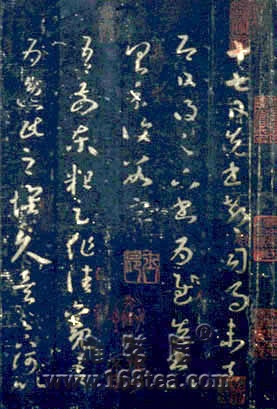 十七日先書郗司馬未去
即日得足下書為慰先書
以具示復數字
吾前東粗足作佳觀吾
為逸民之懷久矣足下何以
www.168tea.com